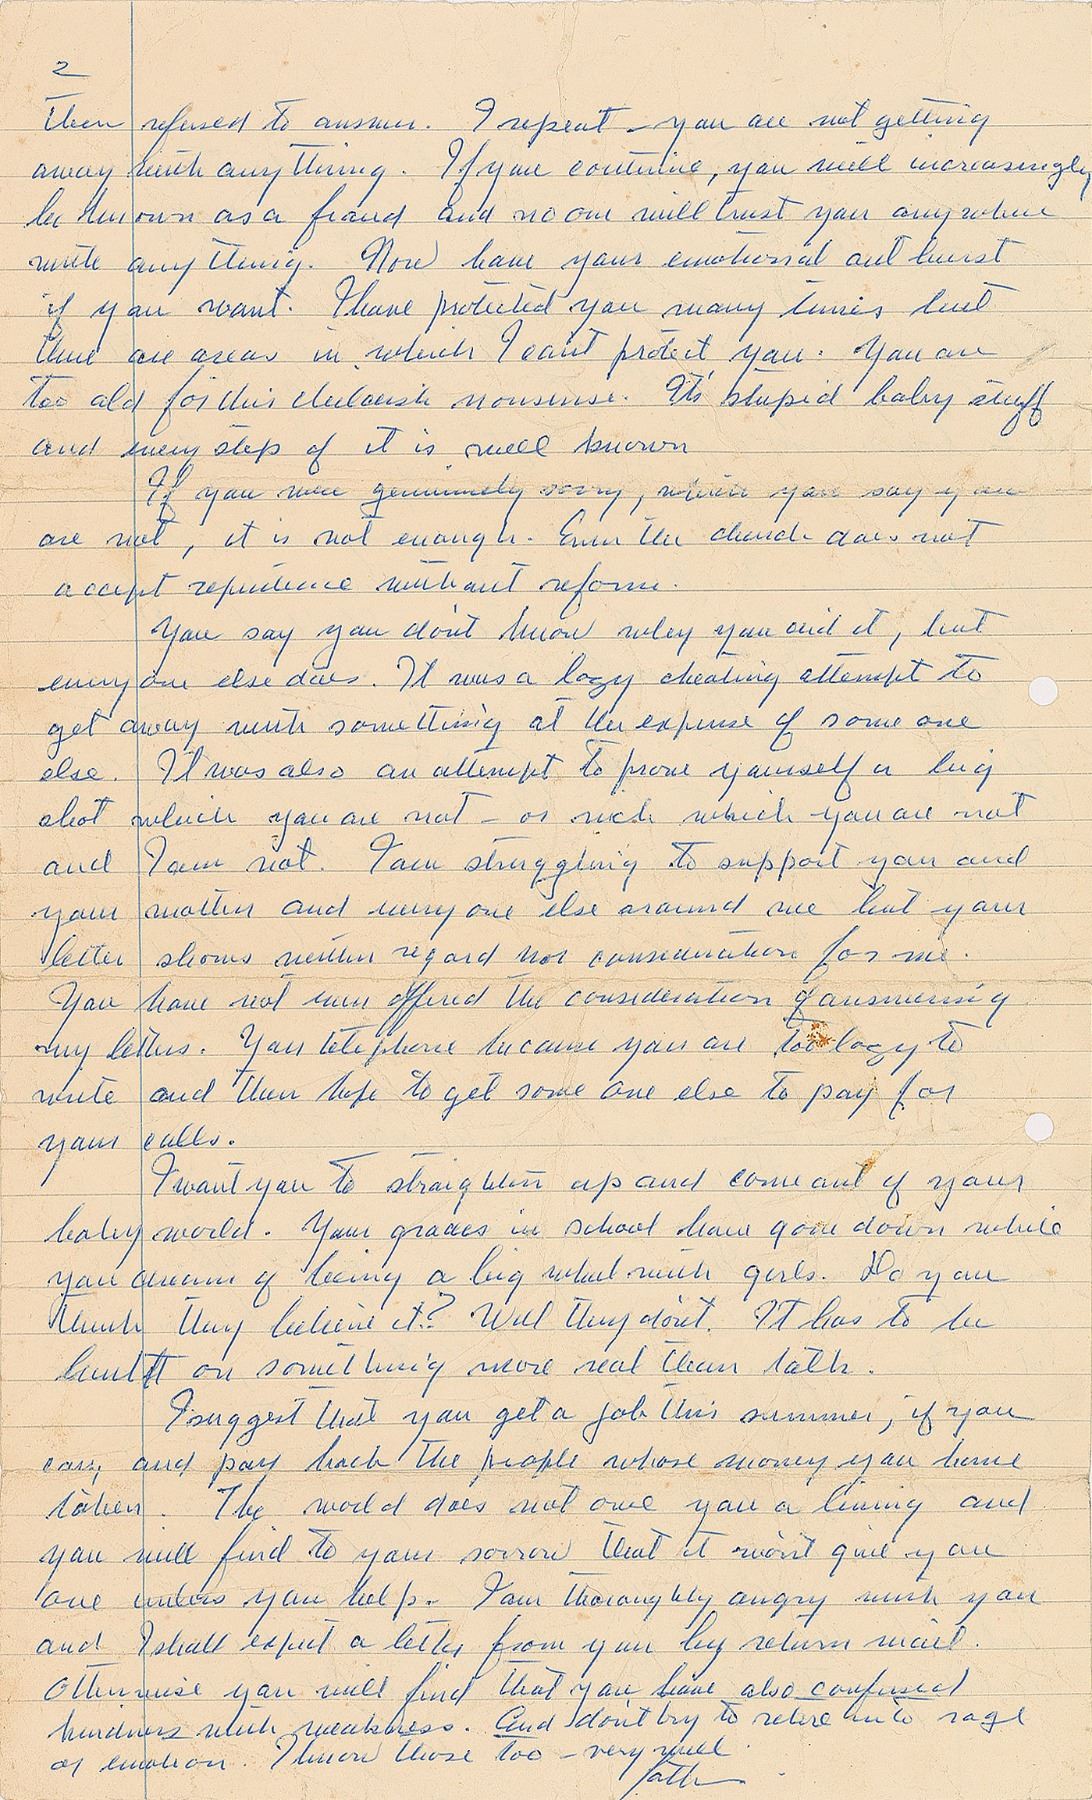 2
then refused to answer. I repeat - you are not getting
away with anything. If you continue, you will increasingly
be known as a fraud and no one will trust you anywhere
with anything. Now have your emotional outburst
if you want. I have protected you many times but
there are areas in which I can't protect you. You are
too old for this childish nonsense. It's stupid baby stuff
and every step of it is well known
If you were genuinely sorry, which you say you
are not, it is not enough. Even the church does not
accept repentence without reform.
You say you don't know why you did it, but
every one else does. It was a lazy cheating attempt to
get away with something at the expense of some one
else. It was also an attempt to prove yourself a big
shot which you are not - or rich which you are not
and I am not. I am struggling to support you and
your mother and every one else around me but your
letter shows neither regard nor consideration for me.
You have not even offered the consideration of answering
my letters. You telephone because you are too lazy to
write and then hope to get some one else to pay for
your calls.
I want you to straighten up and come out of your
baby world. Your grades in school have gone down while
you dream of being a big wheel with girls. Do you
think they believe it? Well they don't. It has to be
built on something more real than talk.
I suggest that you get a job this summer, if you
can, and pay back the people whose money you have
taken. The world does not owe you a living and
you will find to your sorrow that it won't give you
one unless you help. I am thoroughly angry with you
and I shall expect a letter from you by return mail.
Otherwise you will find that you have also confused
kindness with weakness. And don't try to retire into rage
or emotion. I know those too - very well.
Father